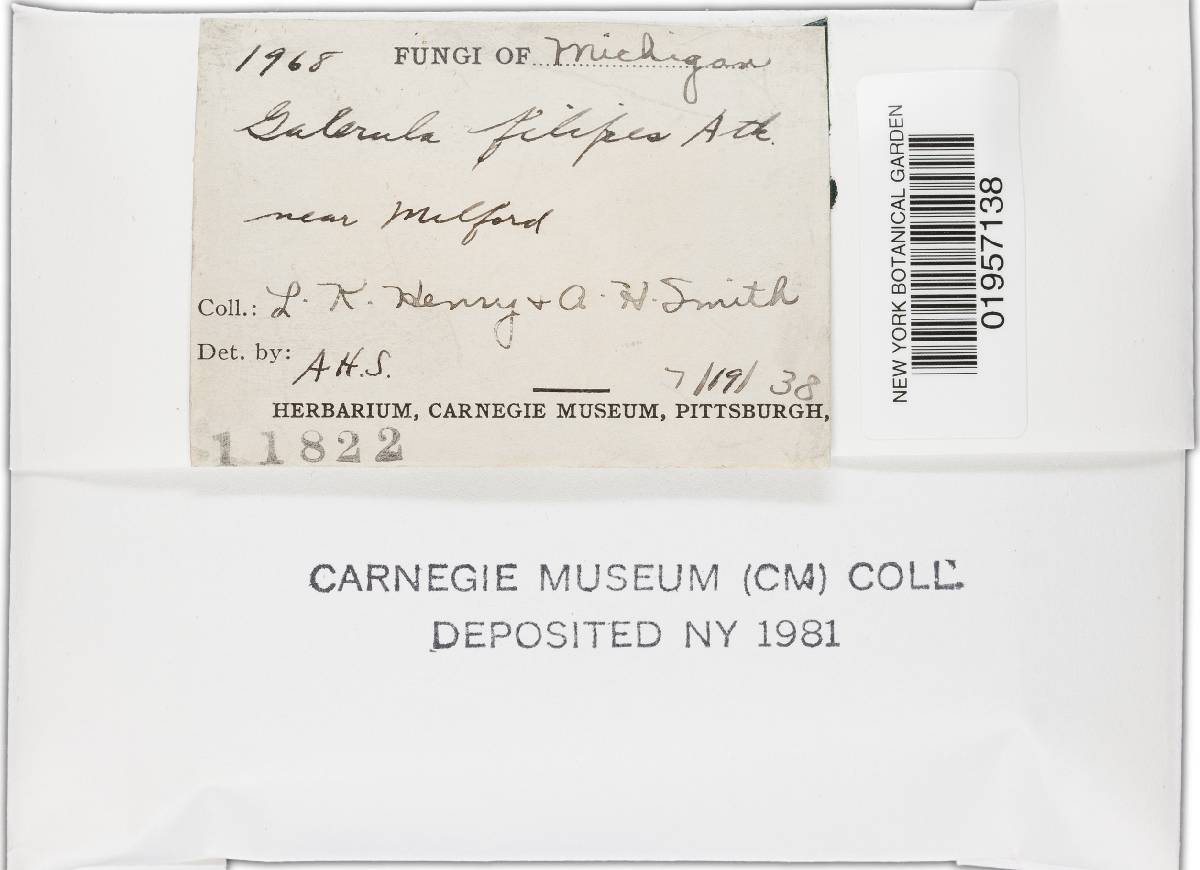 1968 FUNGI OF Michigan
Galerula filipes Atk.
near Milford
Coll.: L. K. Henry + A. H. Smith
Det. by: A.H.S.
7/19/38
HERBARIUM, CARNEGIE MUSEUM, PITTSBURGH,
11822
NEW YORK BOTANICAL GARDEN
01957138
CARNEGIE MUSEUM (CM) COLL.
DEPOSITED NY 1981